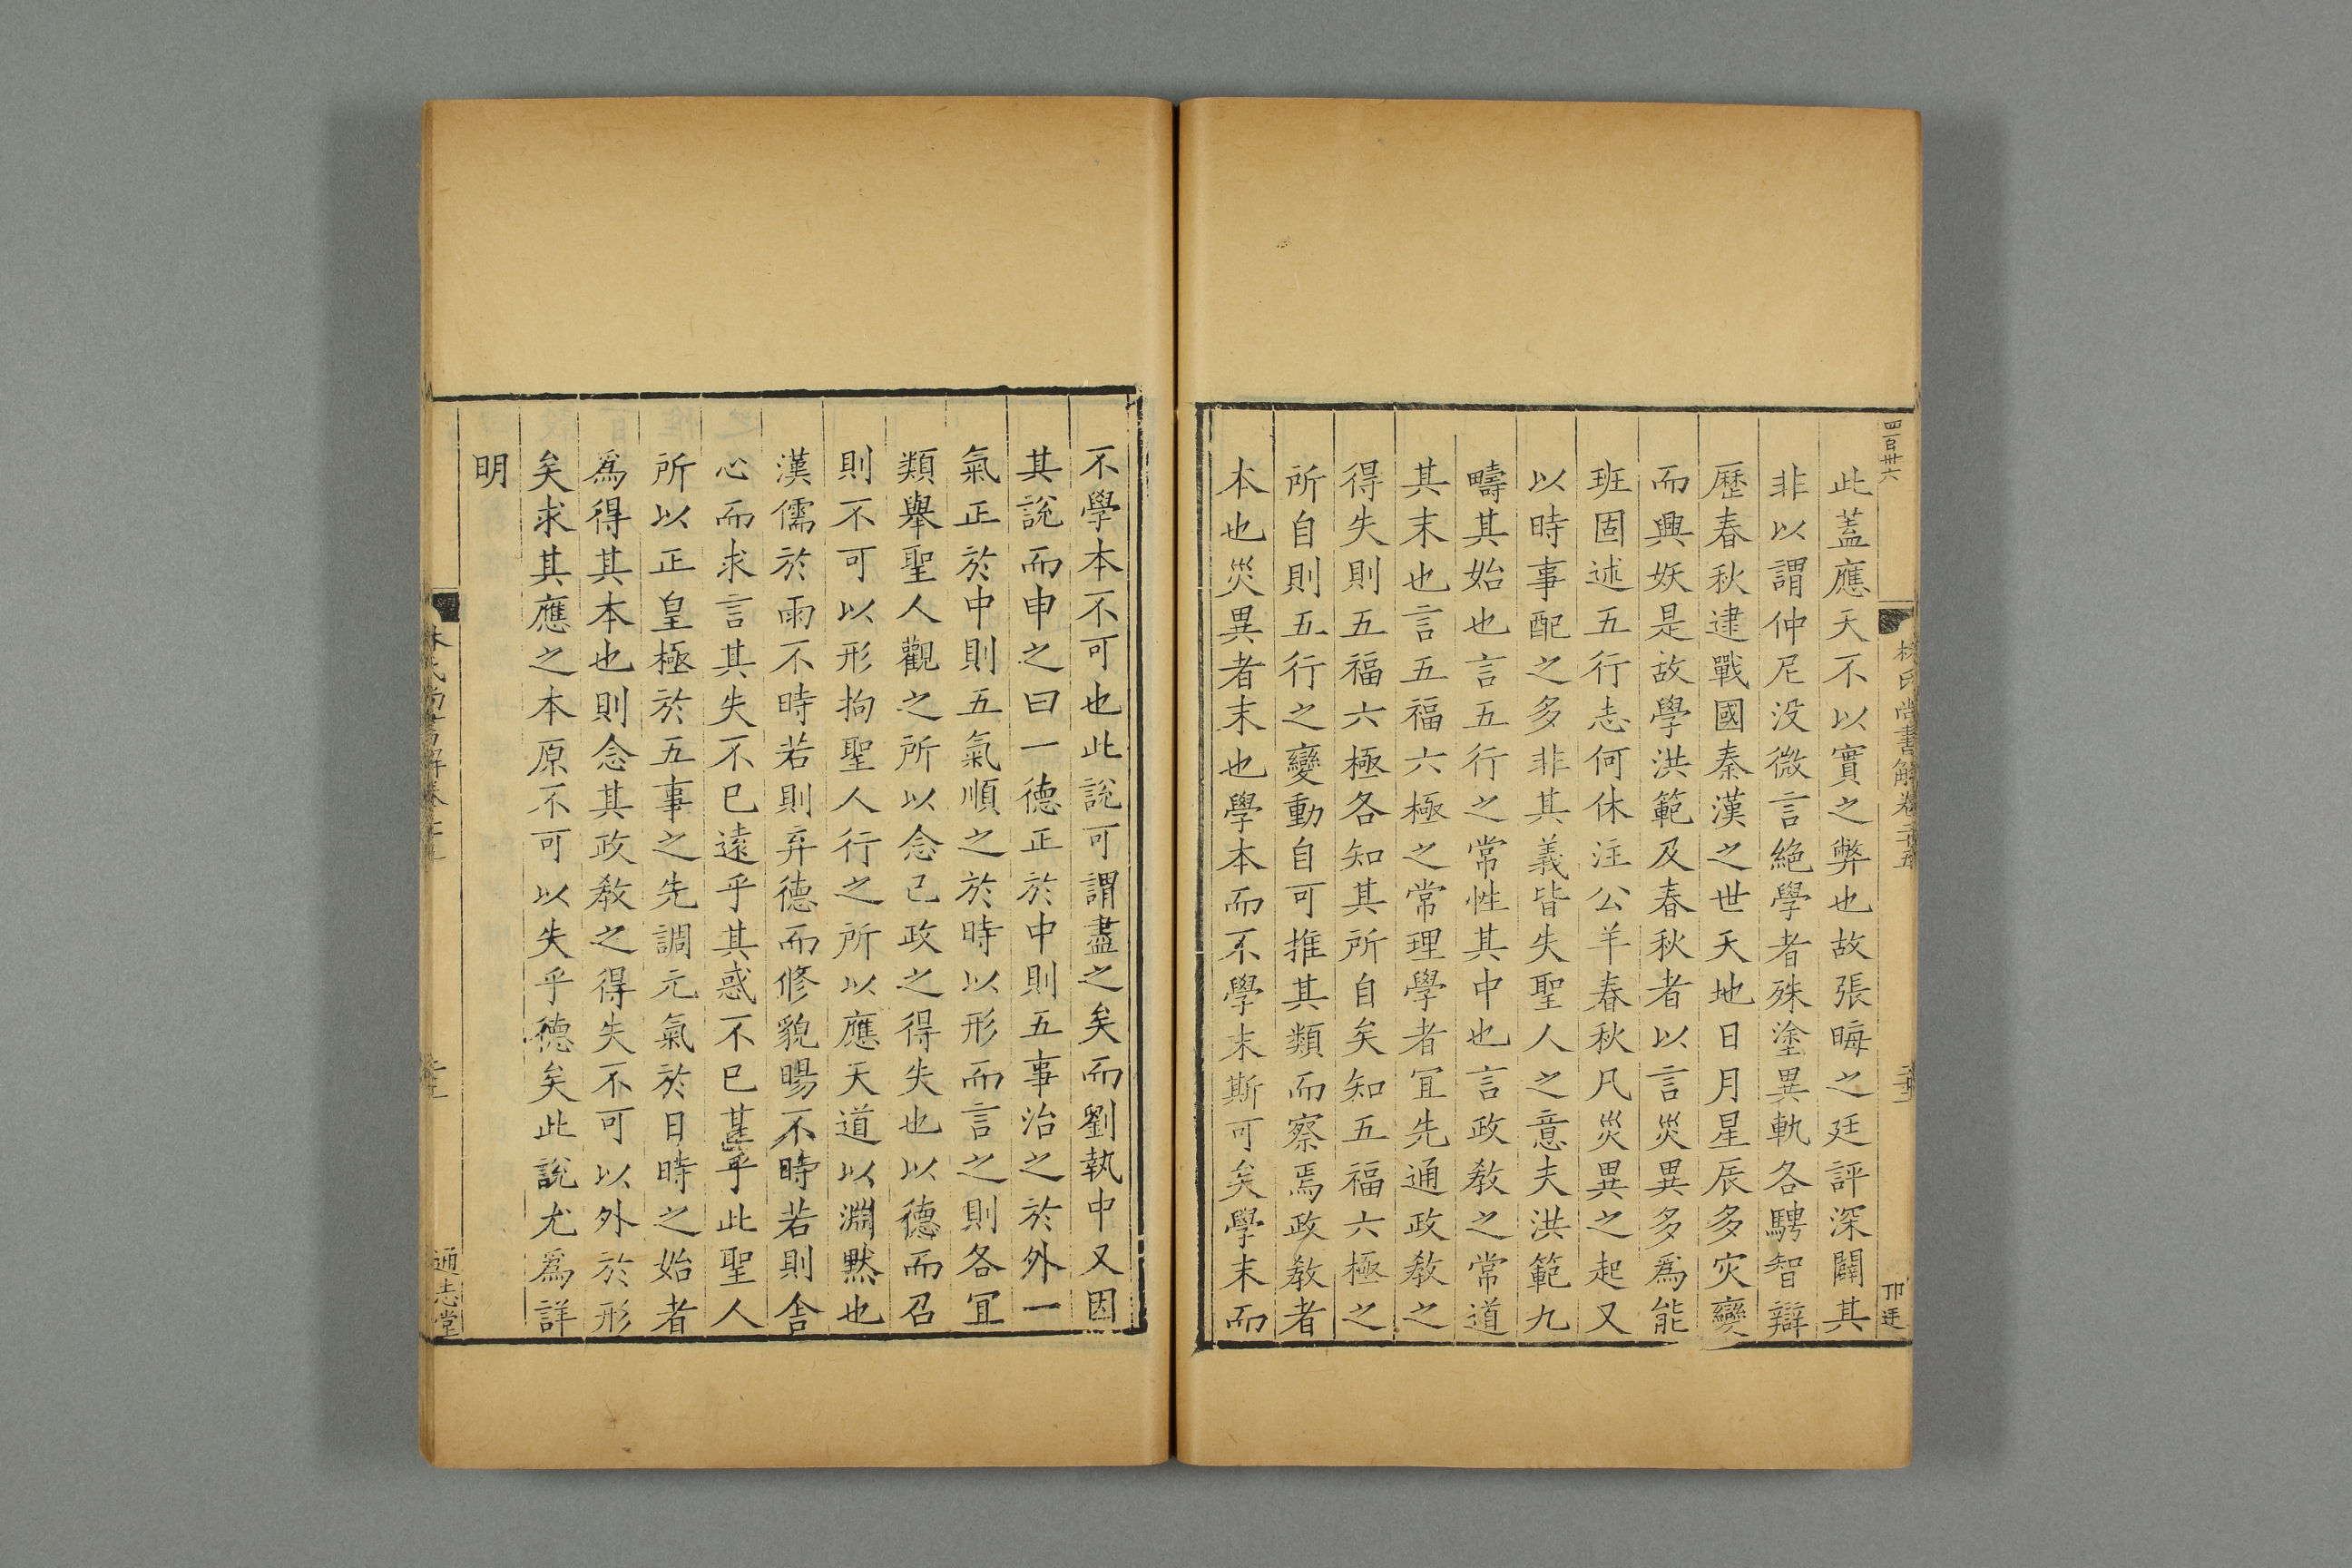 四百廿六
林氏尚書解卷二十五
此蓋應天不以實之弊也故張晦之廷評深闢其
非以謂仲尼没微言絕學者殊塗異軌各騁智辯
歷春秋逮戰國秦漢之世天地日月星辰多灾變
而興妖是故學洪範及春秋者以言災異多爲能
班固述五行志何休注公羊春秋凡災異之起又
以時事配之多非其義皆失聖人之意夫洪範九
疇其始也言五行之常性其中也言政教之常道
其末也言五福六極之常理學者宜先通政教之
得失則五福六極各知其所自矣知五福六極之
所自則五行之變動自可推其類而察焉政教者
本也災異者末也學本而不學末斯可矣學末而
不學本不可也此説可謂盡之矣而劉執中又因
其說而申之曰一德正於中則五事治之於外一
氣正於中則五氣順之於時以形而言之則各宜
類舉聖人觀之所以念己政之得失也以德而召
則不可以形拘聖人行之所以應天道以淵默也
漢儒於雨不時若則弃德而修貌暘不時若則舍
心而求言其失不已遠乎其惑不已甚乎此聖人
所以正皇極於五事之先調元氣於日時之始者
爲得其本也則念其政教之得失不可以外於形
矣求其應之本原不可以失乎德矣此說尤爲詳
明
林氏尚書解卷二十五
通志堂